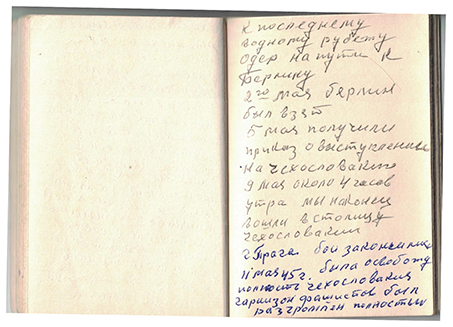 к последнему
водному рубежу
Одер на пути к
Берлину
2го мая Берлин
был взят
5 мая получили
приказ о выступление
на Чехословакию
9 мая около 4 часов
утра мы наконец
вошли в столицу
Чехословакии
г. Прага. бои закончили
11 мая 45 г. была освобожд
полность Чехословакия
гарнизон фашистов был
разгромлен полностью